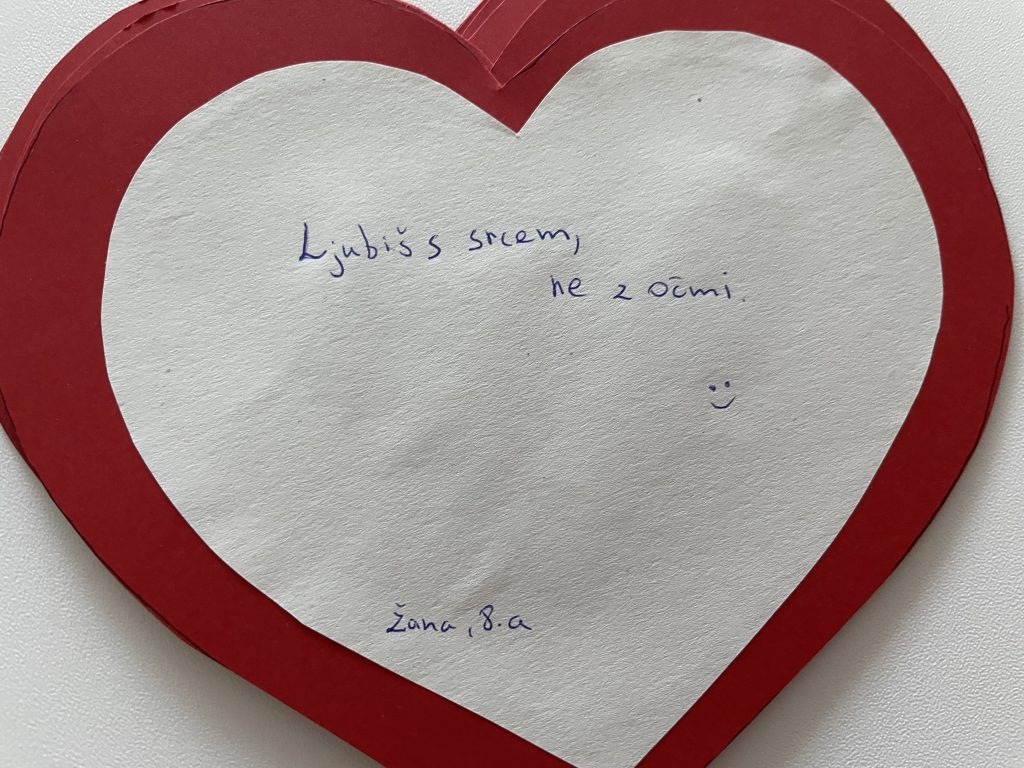 Ljubiš s srcem,
ne z očmi.
Žana, 8.a